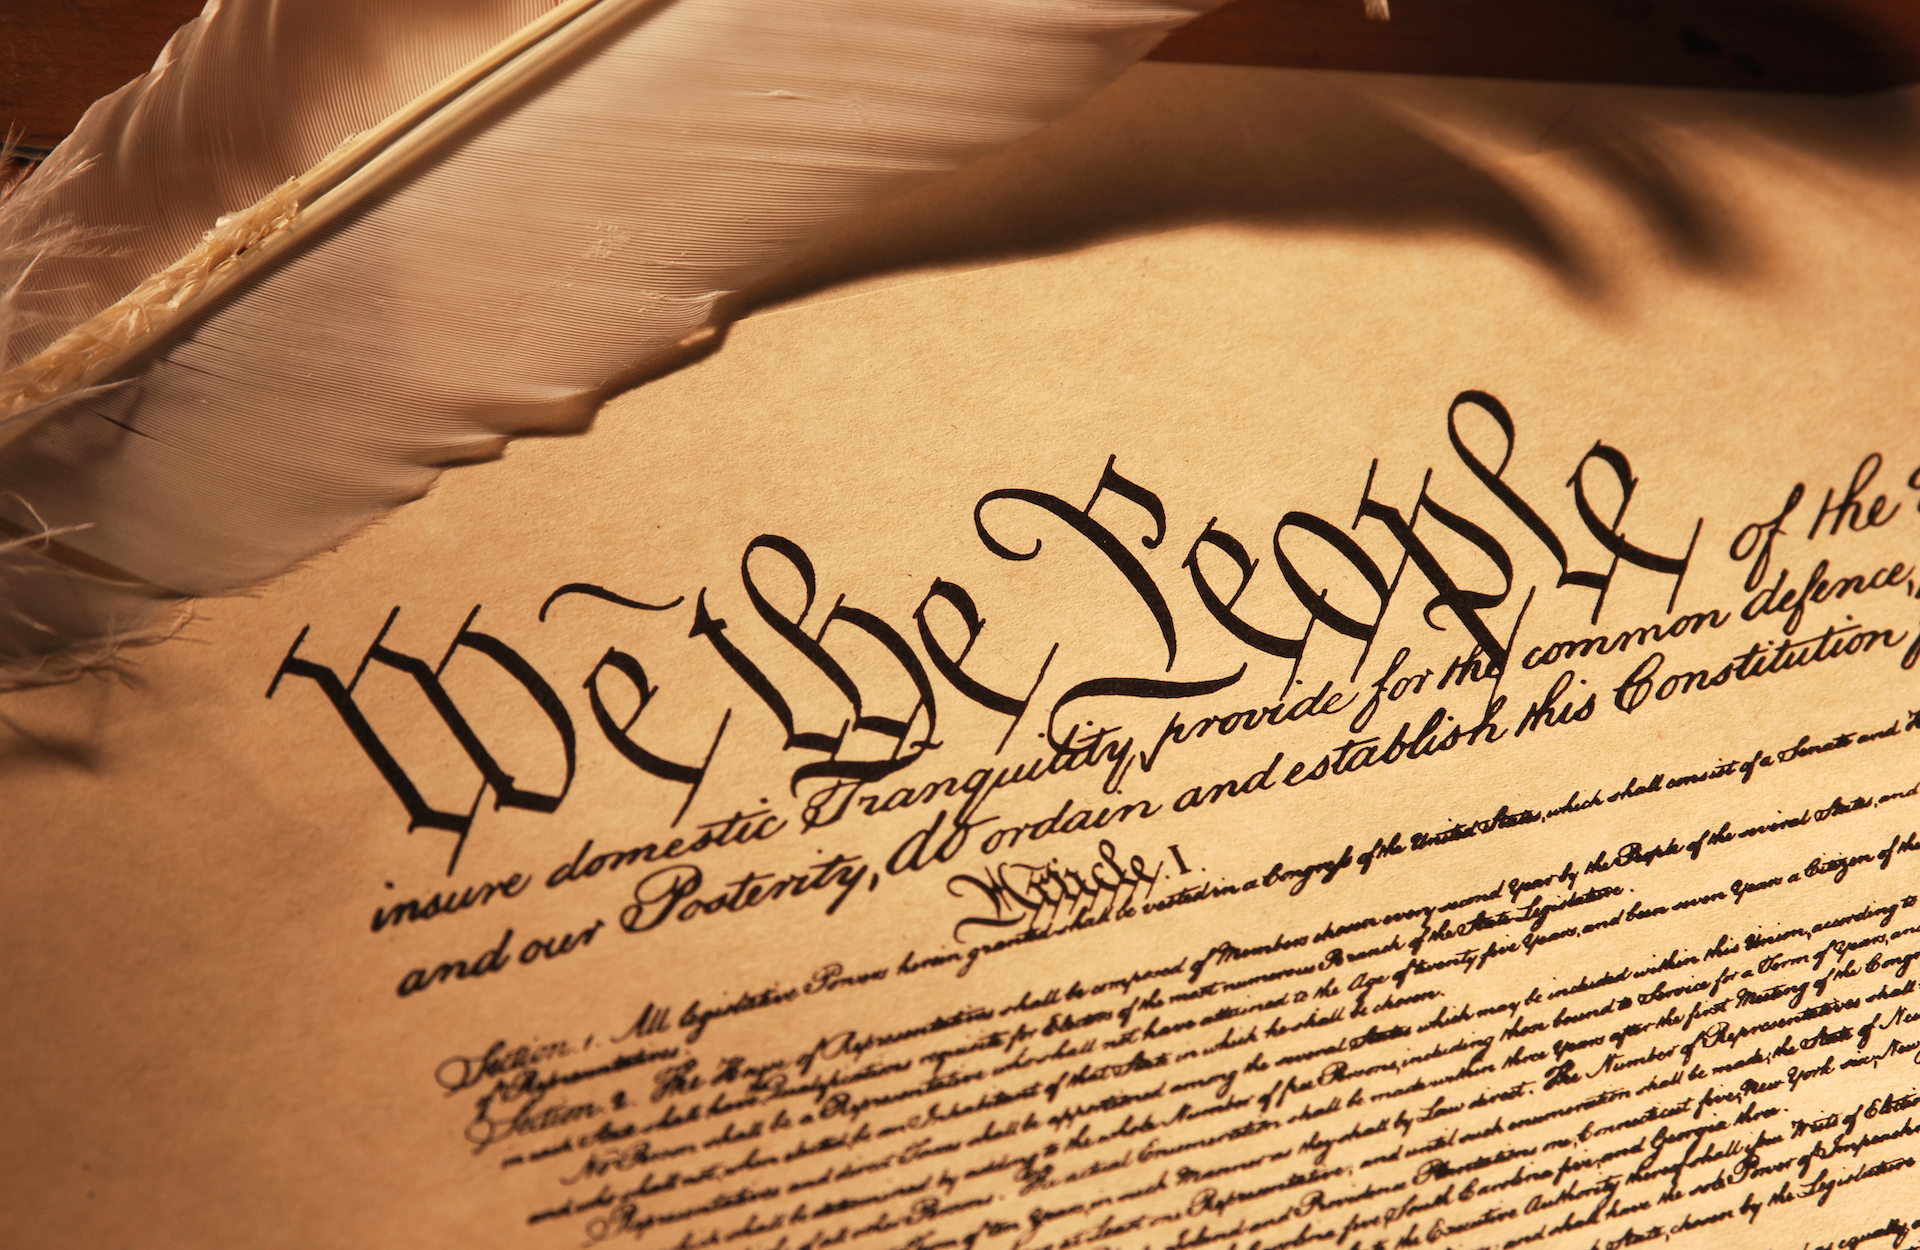 We the People of the
insure domestic Tranquility, provide for the common defence,
and our Posterity, do ordain and establish this Constitution
Article. I.
Section. 1. All legislative Powers herein granted shall be vested in a Congress of the United States, which shall consist of a Senate and
of Representatives.
Section. 2. The House of Representatives shall be composed of Members chosen every second Year by the People of the several States, and
in each State shall have Qualifications requisite for Electors of the most numerous Branch of the State Legislature.
No Person shall be a Representative who shall not have attained to the Age of twenty five Years, and been seven Years a Citizen of the
and who shall not, when elected, be an Inhabitant of that State in which he shall be chosen.
Representatives and direct Taxes shall be apportioned among the several States which may be included within this Union, according to
which shall be determined by adding to the whole Number of free Persons, including those bound to Service for a Term of Years, and
of all other Persons. The actual Enumeration shall be made within three Years after the first Meeting of the
of ten Years, in such Manner as they shall by Law direct. The Number of Representatives shall
at Least one Representative; and until such enumeration shall be made, the State of New
and Providence Plantations one, Connecticut five, New York six, New
five, South Carolina five, and Georgia three.
the Executive Authority thereof shall issue Writs of
and shall have the sole Power of
State, chosen by the Legislature
equally